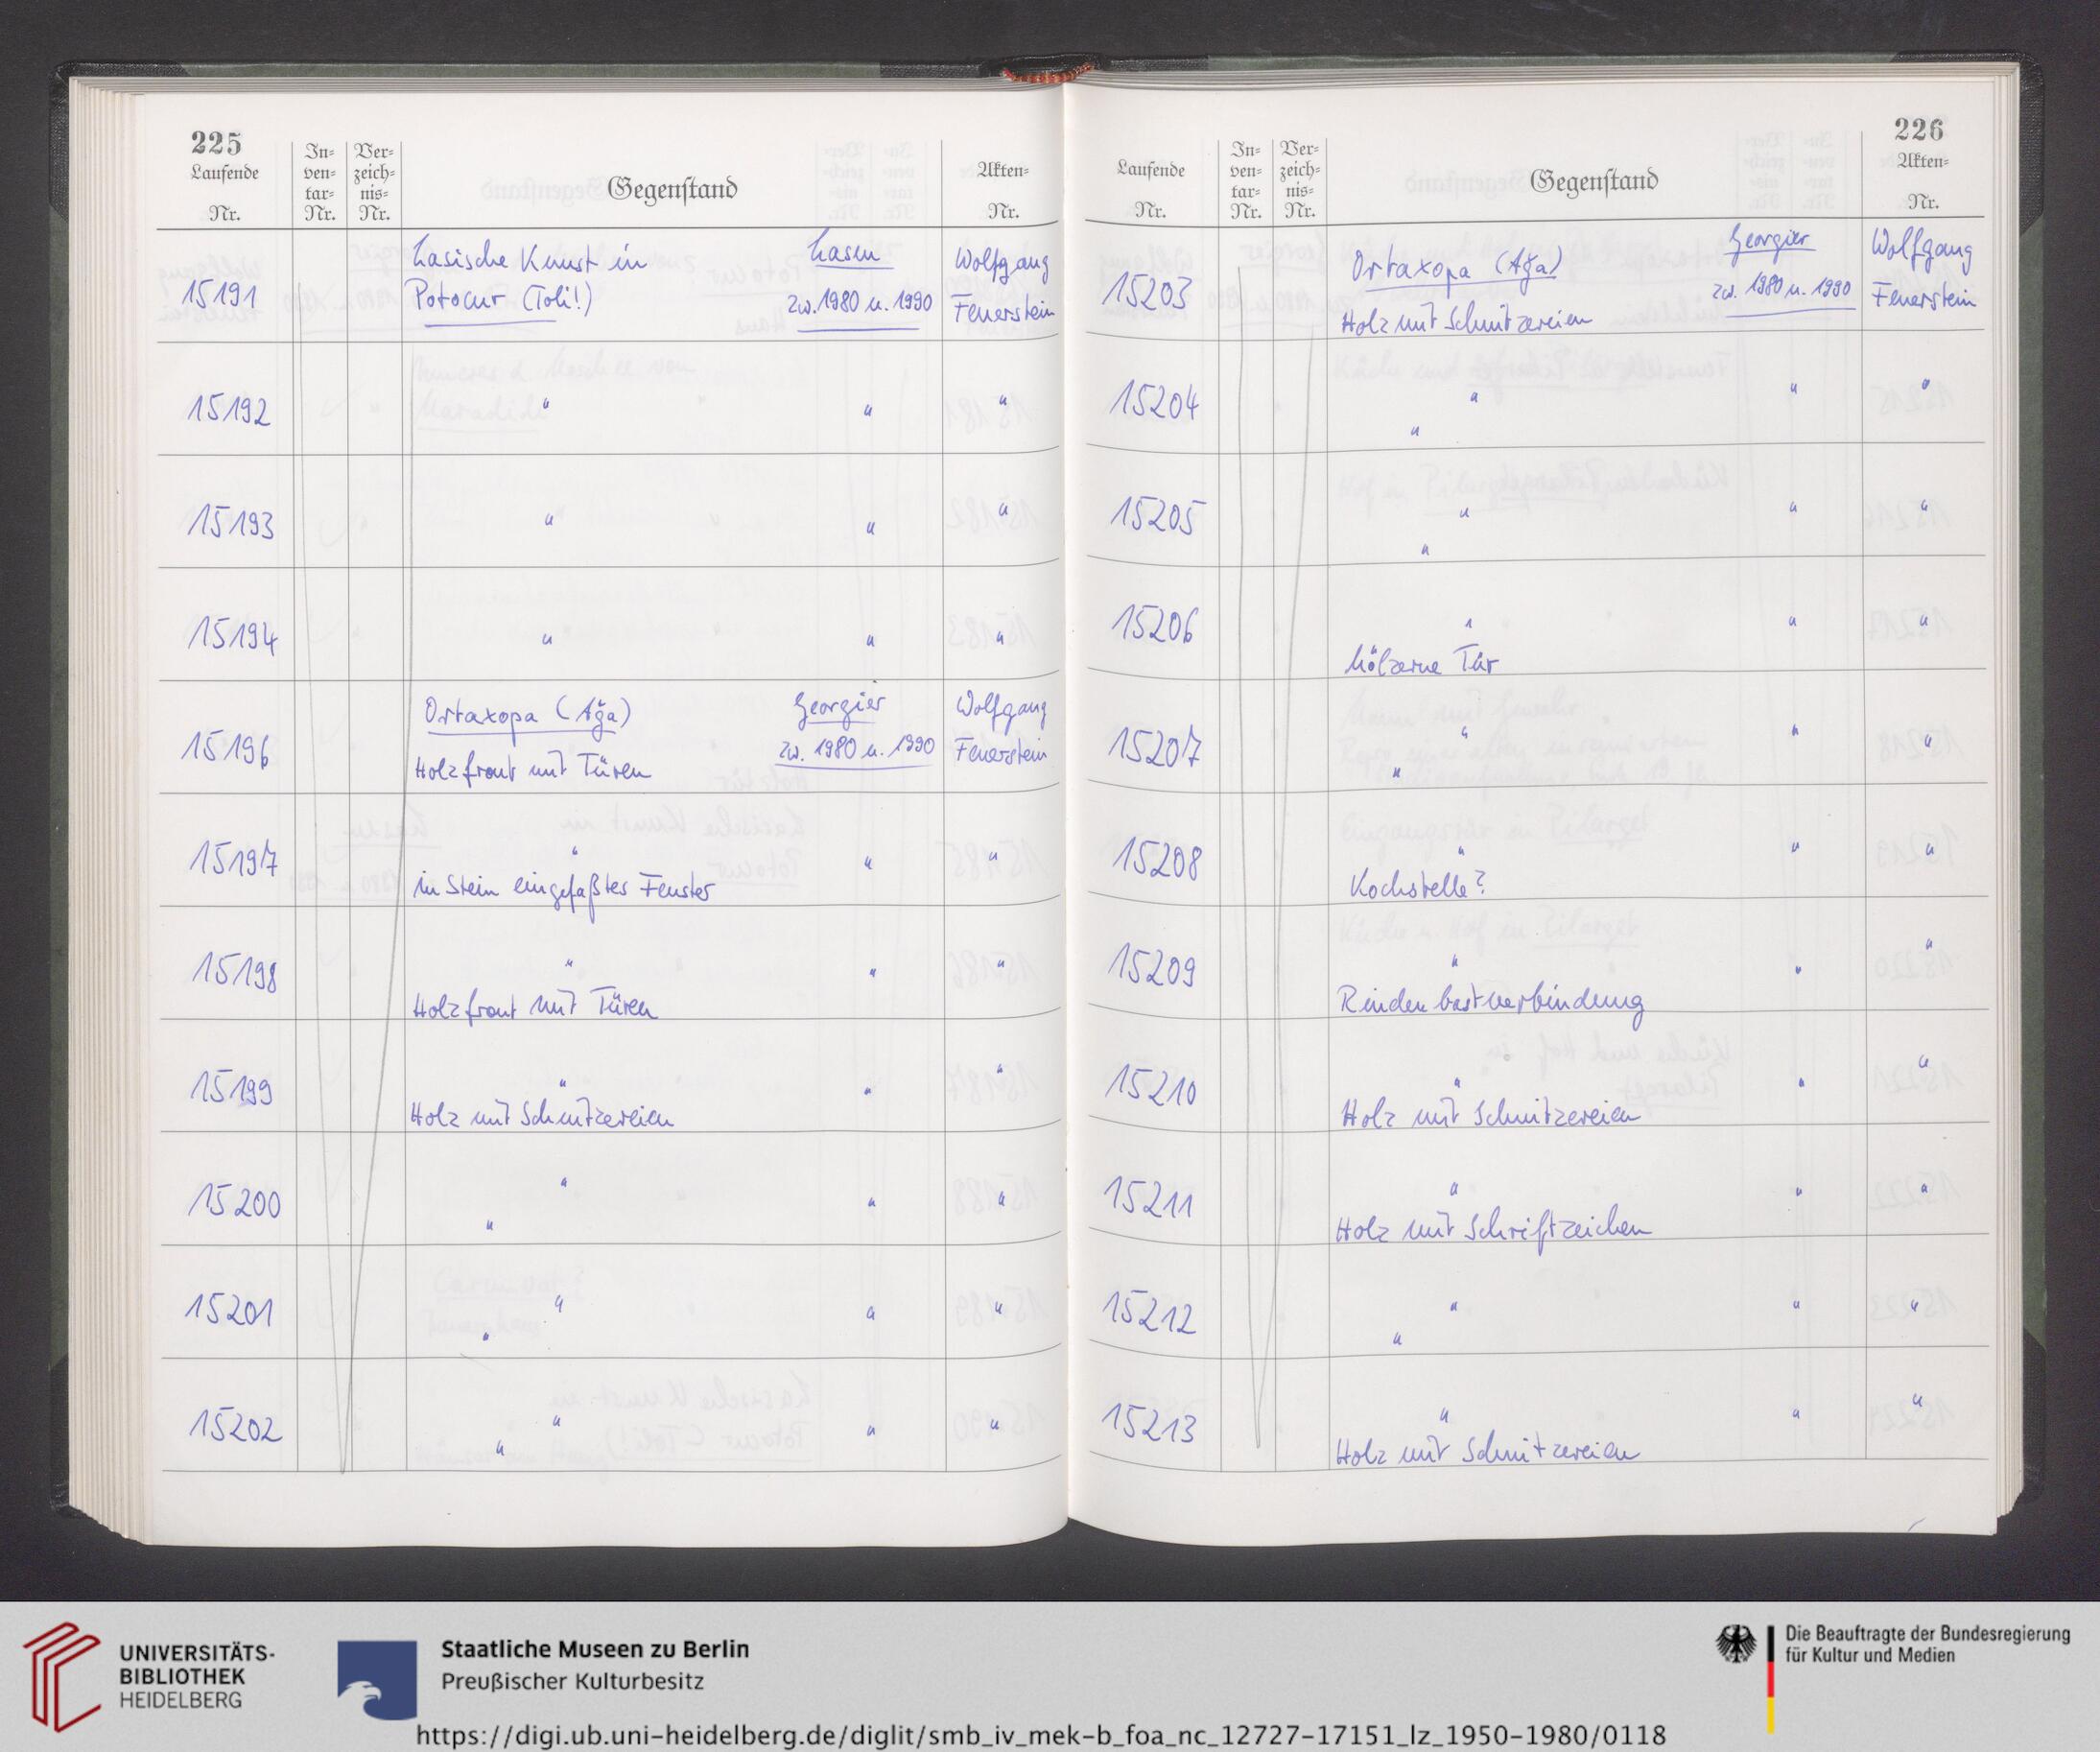 225
Laufende Nr.
In-ven-tar-Nr.
Ver-zeich-nis-Nr.
Gegenstand
Akten-Nr.
15191 Lasische Kunst in Potocur (Toli!) Lasen zw. 1980 u. 1990 Wolfgang Feuerstein
15192 " " "
15193 " " "
15194 " " "
15196 Ortaxopa (Ağa) Georgier Wolfgang
Holzfront mit Türen zw. 1980 u. 1990 Feuerstein
15197 " " "
in Stein eingefaßtes Fenster
15198 " " "
Holzfront mit Türen
15199 " " "
Holz mit Schnitzereien
15200 " " "
"
15201 " " "
"
15202 " " "
"
226
Laufende Nr.
In-ven-tar-Nr.
Ver-zeich-nis-Nr.
Gegenstand
Akten-Nr.
15203 Ortaxopa (Ağa) Georgier Wolfgang
Holz mit Schnitzereien zw. 1980 u. 1990 Feuerstein
15204 " " "
"
15205 " " "
"
15206 " " "
hölzerne Tür
15207 " " "
"
15208 " " "
Kochstelle?
15209 " " "
Rindenbastverbindung
15210 " " "
Holz mit Schnitzereien
15211 " " "
Holz mit Schriftzeichen
15212 " " "
"
15213 " " "
Holz mit Schnitzereien
UNIVERSITÄTS-
BIBLIOTHEK
HEIDELBERG
Staatliche Museen zu Berlin
Preußischer Kulturbesitz
Die Beauftragte der Bundesregierung
für Kultur und Medien
https://digi.ub.uni-heidelberg.de/diglit/smb_iv_mek-b_foa_nc_12727-17151_lz_1950-1980/0118